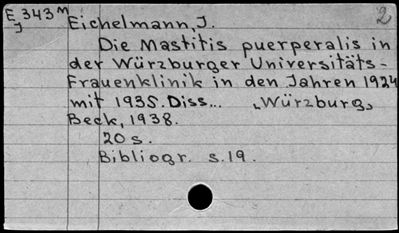 E 343 M
J
2
Eichelmann, J.
Die Mastitis puerperalis in
der Würzburger Universitäts-
Frauenklinik in den Jahren 1924
mit 1935. Diss... „Würzburg„
Beck, 1938.
20 s.
Bibliogr. s.19.